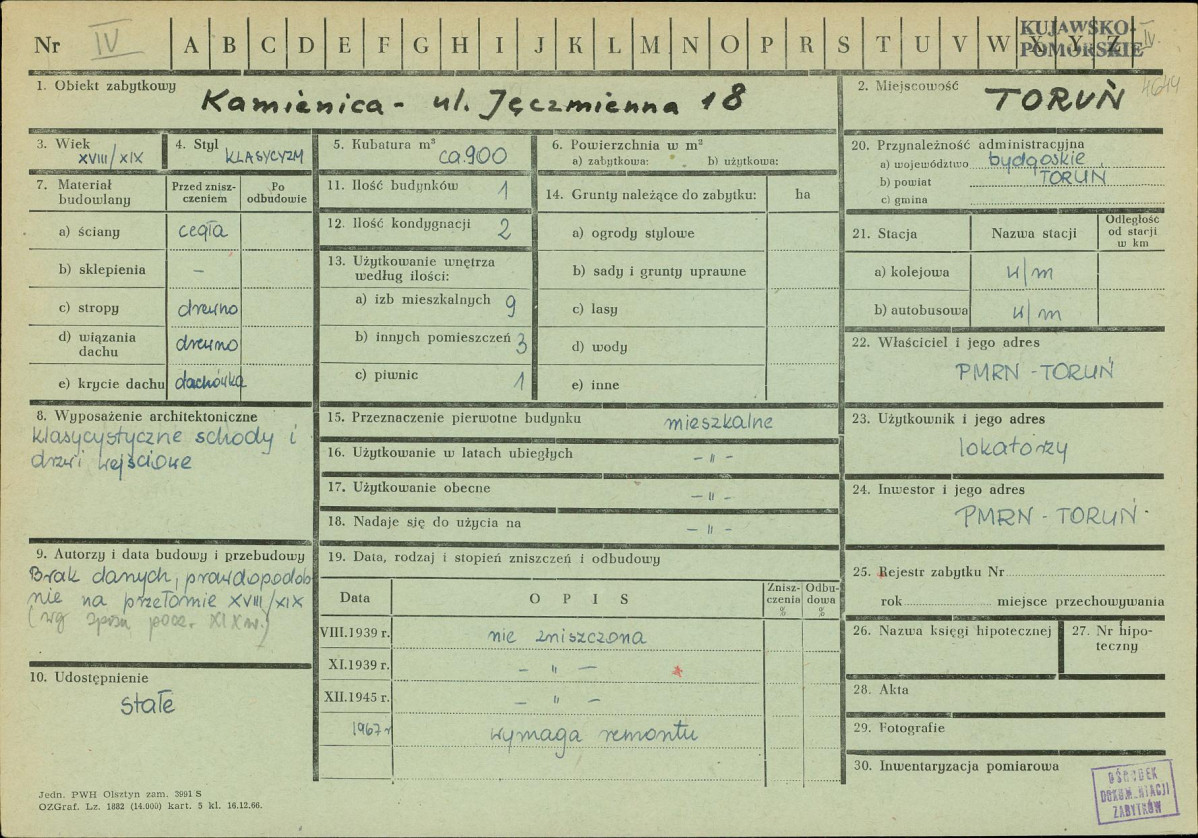 Nr IV A B C D E F G H I J K L M N O P R S T U V W X Y Z
KUJAWSKO-
POMORSKIE
IV.
4644
1. Obiekt zabytkowy
Kamienica - ul. Jęczmienna 18
2. Miejscowość
TORUŃ
3. Wiek
XVIII/XIX
4. Styl
KLASYCYZM
5. Kubatura m³
ca.900
6. Powierzchnia w m²
a) zabytkowa: b) użytkowa:
20. Przynależność administracyjna
a) województwo bydgoskie
b) powiat TORUŃ
c) gmina
7. Materiał budowlany
Przed zniszczeniem
Po odbudowie
a) ściany cegła
b) sklepienia –
c) stropy drewno
d) wiązania dachu drewno
e) krycie dachu dachówka
11. Ilość budynków 1
12. Ilość kondygnacji 2
13. Użytkowanie wnętrza
według ilości:
a) izb mieszkalnych 9
b) innych pomieszczeń 3
c) piwnic 1
14. Grunty należące do zabytku: ha
a) ogrody stylowe
b) sady i grunty uprawne
c) lasy
d) wody
e) inne
21. Stacja
Nazwa stacji
Odległość
od stacji
w km
a) kolejowa w/m
b) autobusowa w/m
22. Właściciel i jego adres
PMRN - TORUŃ
8. Wyposażenie architektoniczne
klasycystyczne schody i
drzwi wejściowe
15. Przeznaczenie pierwotne budynku mieszkalne
16. Użytkowanie w latach ubiegłych – " –
17. Użytkowanie obecne – " –
18. Nadaje się do użycia na – " –
23. Użytkownik i jego adres
lokatorzy
24. Inwestor i jego adres
PMRN - TORUŃ
9. Autorzy i data budowy i przebudowy
Brak danych, prawdopodob
nie na przełomie XVIII/XIX
(wg spisu pocz. XIX w.)
10. Udostępnienie
stałe
19. Data, rodzaj i stopień zniszczeń i odbudowy
Data
O P I S
Zniszczenia
%
Odbudowa
%
VIII.1939 r. nie zniszczona
XI.1939 r. – " –
XII.1945 r. – " –
1967 r wymaga remontu
25. Rejestr zabytku Nr
rok miejsce przechowywania
26. Nazwa księgi hipotecznej
27. Nr hipo-
teczny
28. Akta
29. Fotografie
30. Inwentaryzacja pomiarowa
OŚRODEK
DOKUMENTACJI
ZABYTKÓW
Jedn. PWH Olsztyn zam. 3991 S
OZGraf. Lz. 1882 (14.000) kart. 5 kl. 16.12.66.